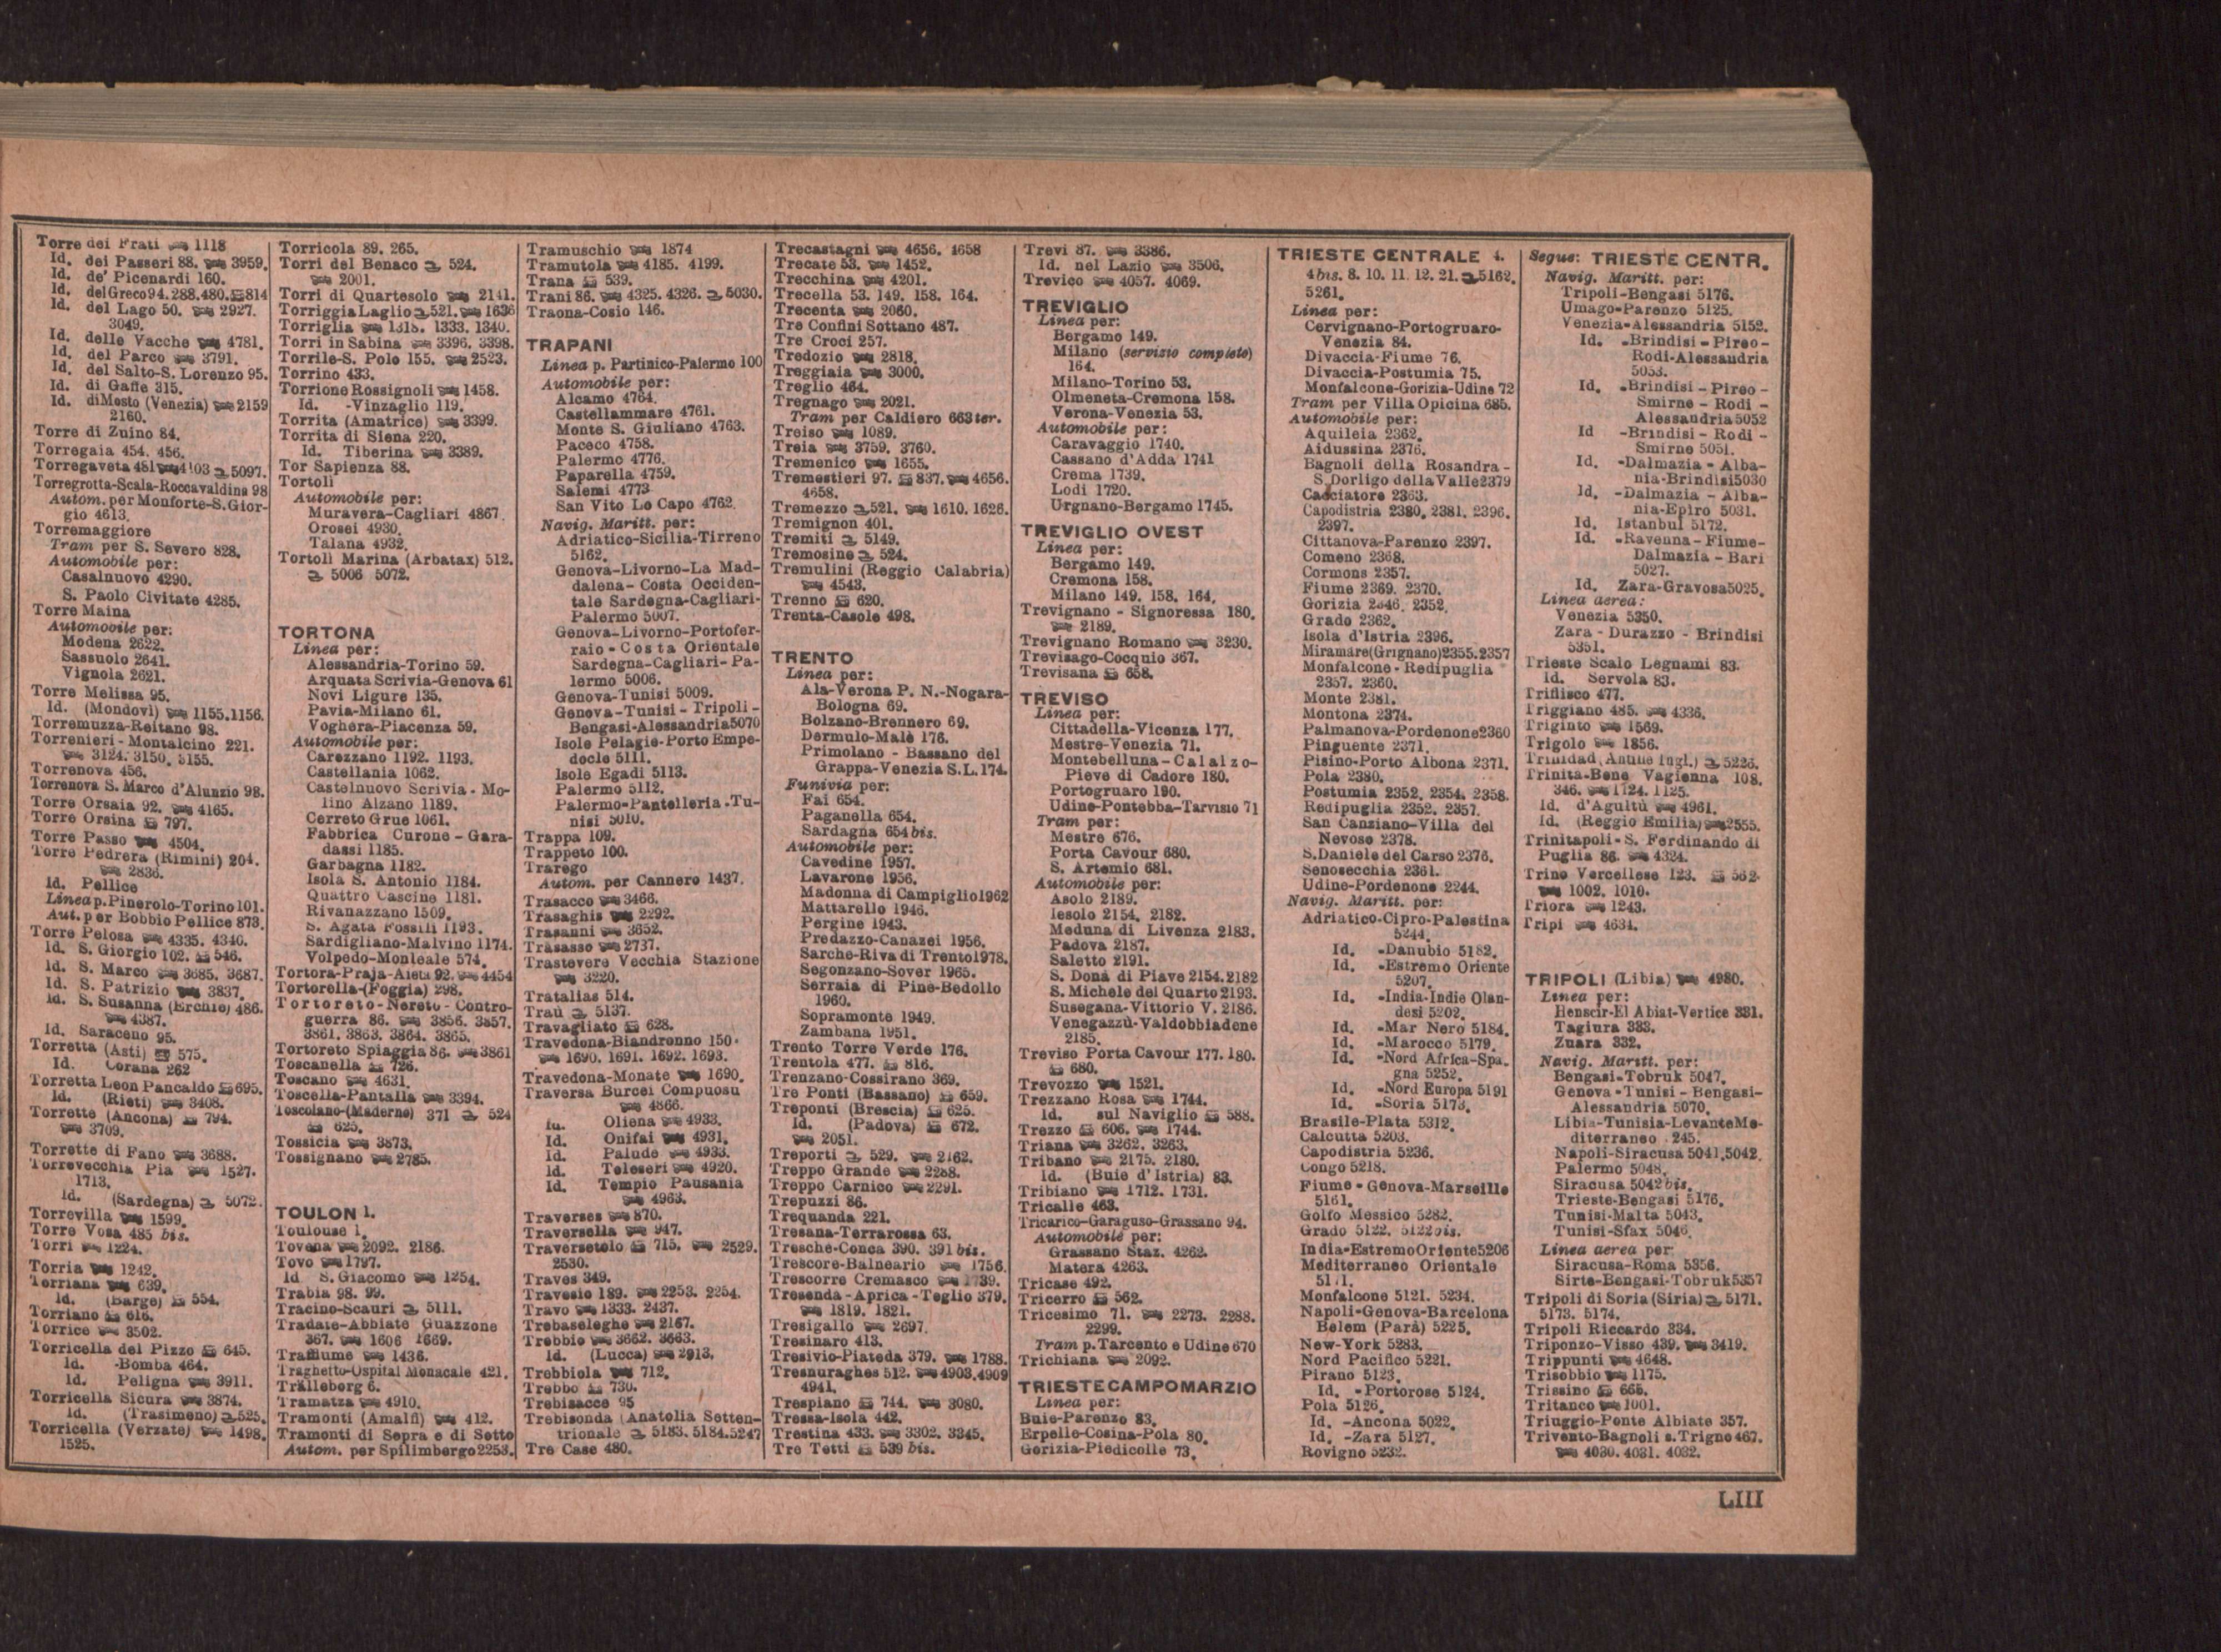 Torre dei Frati 1118
Id. dei Passeri 88. 3959.
Id. de' Picenardi 160.
Id. del Greco 94. 288. 480. 814
Id. del Lago 50. 2927.
3049.
Id. delle Vacche 4781.
Id. del Parco 3791.
Id. del Salto-S. Lorenzo 95.
Id. di Gaffe 315.
Id. di Mosto (Venezia) 2159
2160.
Torre di Zuino 84.
Torregaia 454. 456.
Torregaveta 481 4103 5097.
Torregrotta-Scala-Roccavaldina 98
Autom. per Monforte-S. Gior-
gio 4613.
Torremaggiore
Tram per S. Severo 828.
Automobile per:
Casalnuovo 4290.
S. Paolo Civitate 4285.
Torre Maina
Automobile per:
Modena 2622.
Sassuolo 2641.
Vignola 2621.
Torre Melissa 95.
Id. (Mondovì) 1155. 1156.
Torremuzza-Reitano 98.
Torrenieri-Montalcino 221.
3124. 3150. 3155.
Torrenova 456.
Torrenova S. Marco d'Alunzio 98.
Torre Orsaia 92. 4165.
Torre Orsina 797.
Torre Passo 4504.
Torre Pedrera (Rimini) 204.
2836.
Id. Pellice
Linea p. Pinerolo-Torino 101.
Aut. per Bobbio Pellice 873.
Torre Pelosa 4335. 4340.
Id. S. Giorgio 102. 546.
Id. S. Marco 3685. 3687.
Id. S. Patrizio 3837.
Id. S. Susanna (Erchie) 486.
4387.
Id. Saraceno 95.
Torretta (Asti) 575.
Id. Corana 262
Torretta Leon Pancaldo 695.
Id. (Rieti) 3408.
Torrette (Ancona) 794.
3709.
Torrette di Fano 3688.
Torrevecchia Pia 1527.
1713.
Id. (Sardegna) 5072.
Torrevilla 1599.
Torre Vosa 485 bis.
Torri 1224.
Torria 1242.
Torriana 639.
Id. (Barge) 554.
Torriano 616.
Torrice 3502.
Torricella del Pizzo 645.
Id. -Bomba 464.
Id. Peligna 3911.
Torricella Sicura 3874.
Id. (Trasimeno) 525.
Torricella (Verzate) 1498.
1525.
Torricola 89. 265.
Torri del Benaco 524.
2001.
Torri di Quartesolo 2141.
Torriggia Laglio 521. 1636
Torriglia 1318. 1333. 1340.
Torri in Sabina 3396. 3398.
Torrile-S. Polo 155. 2523.
Torrino 433.
Torrione Rossignoli 1458.
Id. -Vinzaglio 119.
Torrita (Amatrice) 3399.
Torrita di Siena 220.
Id. Tiberina 3389.
Tor Sapienza 88.
Tortolì
Automobile per:
Muravera-Cagliari 4867.
Orosei 4930.
Talana 4932.
Tortolì Marina (Arbatax) 512.
5006 5072.
TORTONA
Linea per:
Alessandria-Torino 59.
Arquata Scrivia-Genova 61
Novi Ligure 135.
Pavia-Milano 61.
Voghera-Piacenza 59.
Automobile per:
Carezzano 1192. 1193.
Castellania 1062.
Castelnuovo Scrivia-Mo-
lino Alzano 1189.
Cerreto Grue 1061.
Fabbrica Curone-Gara-
dassi 1185.
Garbagna 1182.
Isola S. Antonio 1184.
Quattro Cascine 1181.
Rivanazzano 1509.
S. Agata Fossili 1193.
Sardigliano-Malvino 1174.
Volpedo-Monleale 574.
Tortora-Praja-Aieta 92. 4454
Tortorella-(Foggia) 298.
Tortoreto-Nereto-Contro-
guerra 86. 3856. 3857.
3861. 3863. 3864. 3865.
Tortoreto Spiaggia 86. 3861
Toscanella 726.
Toscano 4631.
Toscella-Pantalla 3394.
Toscolano-(Maderno) 371 524
625.
Tossicia 3873.
Tossignano 2785.
TOULON 1.
Toulouse 1.
Tovena 2092. 2186.
Tovo 1797.
Id S. Giacomo 1254.
Trabia 98. 99.
Tracino-Scauri 5111.
Tradate-Abbiate Guazzone
367. 1606 1669.
Traffiume 1436.
Traghetto-Ospital Monacale 421.
Trälleborg 6.
Tramatza 4910.
Tramonti (Amalfi) 412.
Tramonti di Sopra e di Sotto
Autom. per Spilimbergo 2253.
Tramuschio 1874
Tramutola 4185. 4199.
Trana 539.
Trani 86. 4325. 4326. 5030.
Traona-Cosio 146.
TRAPANI
Linea p. Partinico-Palermo 100
Automobile per:
Alcamo 4764.
Castellammare 4761.
Monte S. Giuliano 4763.
Paceco 4758.
Palermo 4776.
Paparella 4759.
Salemi 4773
San Vito Lo Capo 4762.
Navig. Maritt. per:
Adriatico-Sicilia-Tirreno
5162.
Genova-Livorno-La Mad-
dalena-Costa Occiden-
tale Sardegna-Cagliari-
Palermo 5007.
Genova-Livorno-Portofer-
raio-Costa Orientale
Sardegna-Cagliari-Pa-
lermo 5006.
Genova-Tunisi 5009.
Genova-Tunisi-Tripoli-
Bengasi-Alessandria 5070
Isole Pelagie-Porto Empe-
docle 5111.
Isole Egadi 5113.
Palermo 5112.
Palermo-Pantelleria-Tu-
nisi 5010.
Trappa 109.
Trappeto 100.
Trarego
Autom. per Cannero 1437.
Trasacco 3466.
Trasaghis 2292.
Trasanni 3652.
Trasasso 2737.
Trastevere Vecchia Stazione
3220.
Tratalias 514.
Traù 5137.
Travagliato 628.
Travedona-Biandronno 150.
1690. 1691. 1692. 1693.
Travedona-Monate 1690.
Traversa Burcei Compuosu
4866.
Id. Oliena 4933.
Id. Onifai 4931.
Id. Palude 4933.
Id. Teleseri 4920.
Id. Tempio Pausania
4963.
Traverses 870.
Traversella 947.
Traversetolo 715. 2529.
2530.
Traves 349.
Travesio 189. 2253. 2254.
Travo 1333. 2437.
Trebaseleghe 2167.
Trebbio 3662. 3663.
Id. (Lucca) 2913.
Trebbiola 712.
Trebbo 730.
Trebisacce 95
Trebisonda (Anatolia Setten-
trionale 5183. 5184. 5247
Tre Case 480.
Trecastagni 4656. 4658
Trecate 53. 1452.
Trecchina 4201.
Trecella 53. 149. 158. 164.
Trecenta 2060.
Tre Confini Sottano 487.
Tre Croci 257.
Tredozio 2818.
Treggiaia 3000.
Treglio 464.
Tregnago 2021.
Tram per Caldiero 663 ter.
Treiso 1089.
Treia 3759. 3760.
Tremenico 1655.
Tremestieri 97. 837. 4656.
4658.
Tremezzo 521. 1610. 1626.
Tremignon 401.
Tremiti 5149.
Tremosine 524.
Tremulini (Reggio Calabria)
4543.
Trenno 620.
Trenta-Casole 498.
TRENTO
Linea per:
Ala-Verona P. N.-Nogara-
Bologna 69.
Bolzano-Brennero 69.
Dermulo-Malè 176.
Primolano-Bassano del
Grappa-Venezia S.L. 174.
Funivia per:
Fai 654.
Paganella 654.
Sardagna 654 bis.
Automobile per:
Cavedine 1957.
Lavarone 1956.
Madonna di Campiglio 1962
Mattarello 1946.
Pergine 1943.
Predazzo-Canazei 1956.
Sarche-Riva di Trento 1978.
Segonzano-Sover 1965.
Serraia di Pinè-Bedollo
1960.
Sopramonte 1949.
Zambana 1951.
Trento Torre Verde 176.
Trentola 477. 816.
Trenzano-Cossirano 369.
Tre Ponti (Bassano) 659.
Treponti (Brescia) 625.
Id. (Padova) 672.
2051.
Treporti 529. 2162.
Treppo Grande 2288.
Treppo Carnico 2291.
Trepuzzi 86.
Trequanda 221.
Tresana-Terrarossa 63.
Tresche-Conca 390. 391 bis.
Trescore-Balneario 1756.
Trescorre Cremasco 1739.
Tresenda-Aprica-Teglio 379.
1819. 1821.
Tresigallo 2697.
Tresinaro 413.
Tresivio-Piateda 379. 1788.
Tresnuraghes 512. 4903. 4909
4941.
Trespiano 744. 3080.
Tressa-Isola 442.
Trestina 433. 3302. 3345.
Tre Tetti 539 bis.
Trevi 87. 3386.
Id. nel Lazio 3506.
Trevico 4057. 4069.
TREVIGLIO
Linea per:
Bergamo 149.
Milano (servizio completo)
164.
Milano-Torino 53.
Olmeneta-Cremona 158.
Verona-Venezia 53.
Automobile per:
Caravaggio 1740.
Cassano d'Adda 1741
Crema 1739.
Lodi 1720.
Urgnano-Bergamo 1745.
TREVIGLIO OVEST
Linea per:
Bergamo 149.
Cremona 158.
Milano 149. 158. 164.
Trevignano-Signoressa 180.
2189.
Trevignano Romano 3230.
Trevisago-Cocquio 367.
Trevisana 658.
TREVISO
Linea per:
Cittadella-Vicenza 177.
Mestre-Venezia 71.
Montebelluna-Calalzo-
Pieve di Cadore 180.
Portogruaro 190.
Udine-Pontebba-Tarvisio 71
Tram per:
Mestre 676.
Porta Cavour 680.
S. Artemio 681.
Automobile per:
Asolo 2189.
Iesolo 2154. 2182.
Meduna di Livenza 2183.
Padova 2187.
Saletto 2191.
S. Donà di Piave 2154. 2182
S. Michele del Quarto 2193.
Susegana-Vittorio V. 2186.
Venegazzù-Valdobbiadene
2185.
Treviso Porta Cavour 177. 180.
680.
Trevozzo 1521.
Trezzano Rosa 1744.
Id. sul Naviglio 588.
Trezzo 606. 1744.
Triana 3262. 3263.
Tribano 2175. 2180.
Id. (Buie d'Istria) 83.
Tribiano 1712. 1731.
Tricalle 463.
Tricarico-Garaguso-Grassano 94.
Automobile per:
Grassano Staz. 4262.
Matera 4263.
Tricase 492.
Tricerro 562.
Tricesimo 71. 2273. 2288.
2299.
Tram p. Tarcento e Udine 670
Trichiana 2092.
TRIESTE CAMPOMARZIO
Linea per:
Buie-Parenzo 83.
Erpelle-Cosina-Pola 80.
Gorizia-Piedicolle 73.
TRIESTE CENTRALE 4.
4 bis. 8. 10. 11. 12. 21. 5162.
5261.
Linea per:
Cervignano-Portogruaro-
Venezia 84.
Divaccia-Fiume 76.
Divaccia-Postumia 75.
Monfalcone-Gorizia-Udine 72
Tram per Villa Opicina 685.
Automobile per:
Aquileia 2362.
Aidussina 2376.
Bagnoli della Rosandra-
S. Dorligo della Valle 2379
Cacciatore 2363.
Capodistria 2380. 2381. 2396.
2397.
Cittanova-Parenzo 2397.
Comeno 2368.
Cormons 2357.
Fiume 2369. 2370.
Gorizia 2346. 2352.
Grado 2362.
Isola d'Istria 2396.
Miramare (Grignano) 2355. 2357
Monfalcone-Redipuglia
2357. 2360.
Monte 2381.
Montona 2374.
Palmanova-Pordenone 2360
Pinguente 2371.
Pisino-Porto Albona 2371.
Pola 2380.
Postumia 2352. 2354. 2358.
Redipuglia 2352. 2357.
San Canziano-Villa del
Nevoso 2378.
S. Daniele del Carso 2376.
Senosecchia 2361.
Udine-Pordenone 2244.
Navig. Maritt. per:
Adriatico-Cipro-Palestina
5244.
Id. -Danubio 5182.
Id. -Estremo Oriente
5207.
Id. -India-Indie Olan-
desi 5202.
Id. -Mar Nero 5184.
Id. -Marocco 5179.
Id. -Nord Africa-Spa-
gna 5252.
Id. -Nord Europa 5191
Id. -Soria 5173.
Brasile-Plata 5312.
Calcutta 5203.
Capodistria 5236.
Congo 5218.
Fiume-Genova-Marseille
5161.
Golfo Messico 5282.
Grado 5122. 5122 bis.
India-Estremo Oriente 5206
Mediterraneo Orientale
5171.
Monfalcone 5121. 5234.
Napoli-Genova-Barcelona
Belem (Parà) 5225.
New-York 5283.
Nord Pacifico 5221.
Pirano 5123.
Id. -Portorose 5124.
Pola 5126.
Id. -Ancona 5022.
Id. -Zara 5127.
Rovigno 5232.
Segue: TRIESTE CENTR.
Navig. Maritt. per:
Tripoli-Bengasi 5176.
Umago-Parenzo 5125.
Venezia-Alessandria 5152.
Id. -Brindisi-Pireo-
Rodi-Alessandria
5053.
Id. -Brindisi-Pireo-
Smirne-Rodi-
Alessandria 5052
Id -Brindisi-Rodi-
Smirne 5051.
Id. -Dalmazia-Alba-
nia-Brindisi 5030
Id. -Dalmazia-Alba-
nia-Epiro 5031.
Id. Istanbul 5172.
Id. -Ravenna-Fiume-
Dalmazia-Bari
5027.
Id. Zara-Gravosa 5025.
Linea aerea:
Venezia 5350.
Zara-Durazzo-Brindisi
5351.
Trieste Scalo Legnami 83.
Id. Servola 83.
Triflisco 477.
Triggiano 485. 4336.
Triginto 1569.
Trigolo 1856.
Trinidad (Antille Ingl.) 5226.
Trinità-Bene Vagienna 108.
346. 1124. 1125.
Id. d'Agultù 4961.
Id. (Reggio Emilia) 2555.
Trinitapoli-S. Ferdinando di
Puglia 86. 4324.
Trino Vercellese 123. 562.
1002. 1010.
Triora 1243.
Tripi 4634.
TRIPOLI (Libia) 4980.
Linea per:
Henscir-El Abiat-Vertice 331.
Tagiura 333.
Zuara 332.
Navig. Maritt. per:
Bengasi-Tobruk 5047.
Genova-Tunisi-Bengasi-
Alessandria 5070.
Libia-Tunisia-Levante Me-
diterraneo 245.
Napoli-Siracusa 5041. 5042.
Palermo 5048.
Siracusa 5042 bis.
Trieste-Bengasi 5176.
Tunisi-Malta 5043.
Tunisi-Sfax 5046.
Linea aerea per:
Siracusa-Roma 5356.
Sirte-Bengasi-Tobruk 5357
Tripoli di Soria (Siria) 5171.
5173. 5174.
Tripoli Riccardo 334.
Triponzo-Visso 439. 3419.
Trippunti 4648.
Trisobbio 1175.
Trissino 665.
Tritanco 1001.
Triuggio-Ponte Albiate 357.
Trivento-Bagnoli s. Trigno 467.
4030. 4031. 4032.
LIII